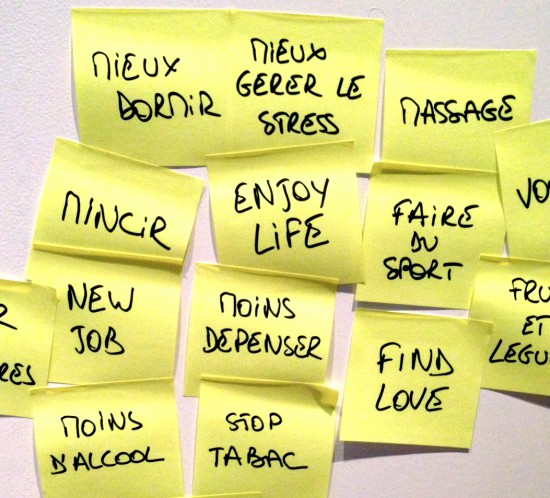 MIEUX
DORMIR
MIEUX
GERER LE
STRESS
MASSAGE
MINCIR
ENJOY
LIFE
FAIRE
DU
SPORT
NEW
JOB
MOINS
DEPENSER
FIND
LOVE
ET
MOINS
D'ALCOOL
STOP
TABAC